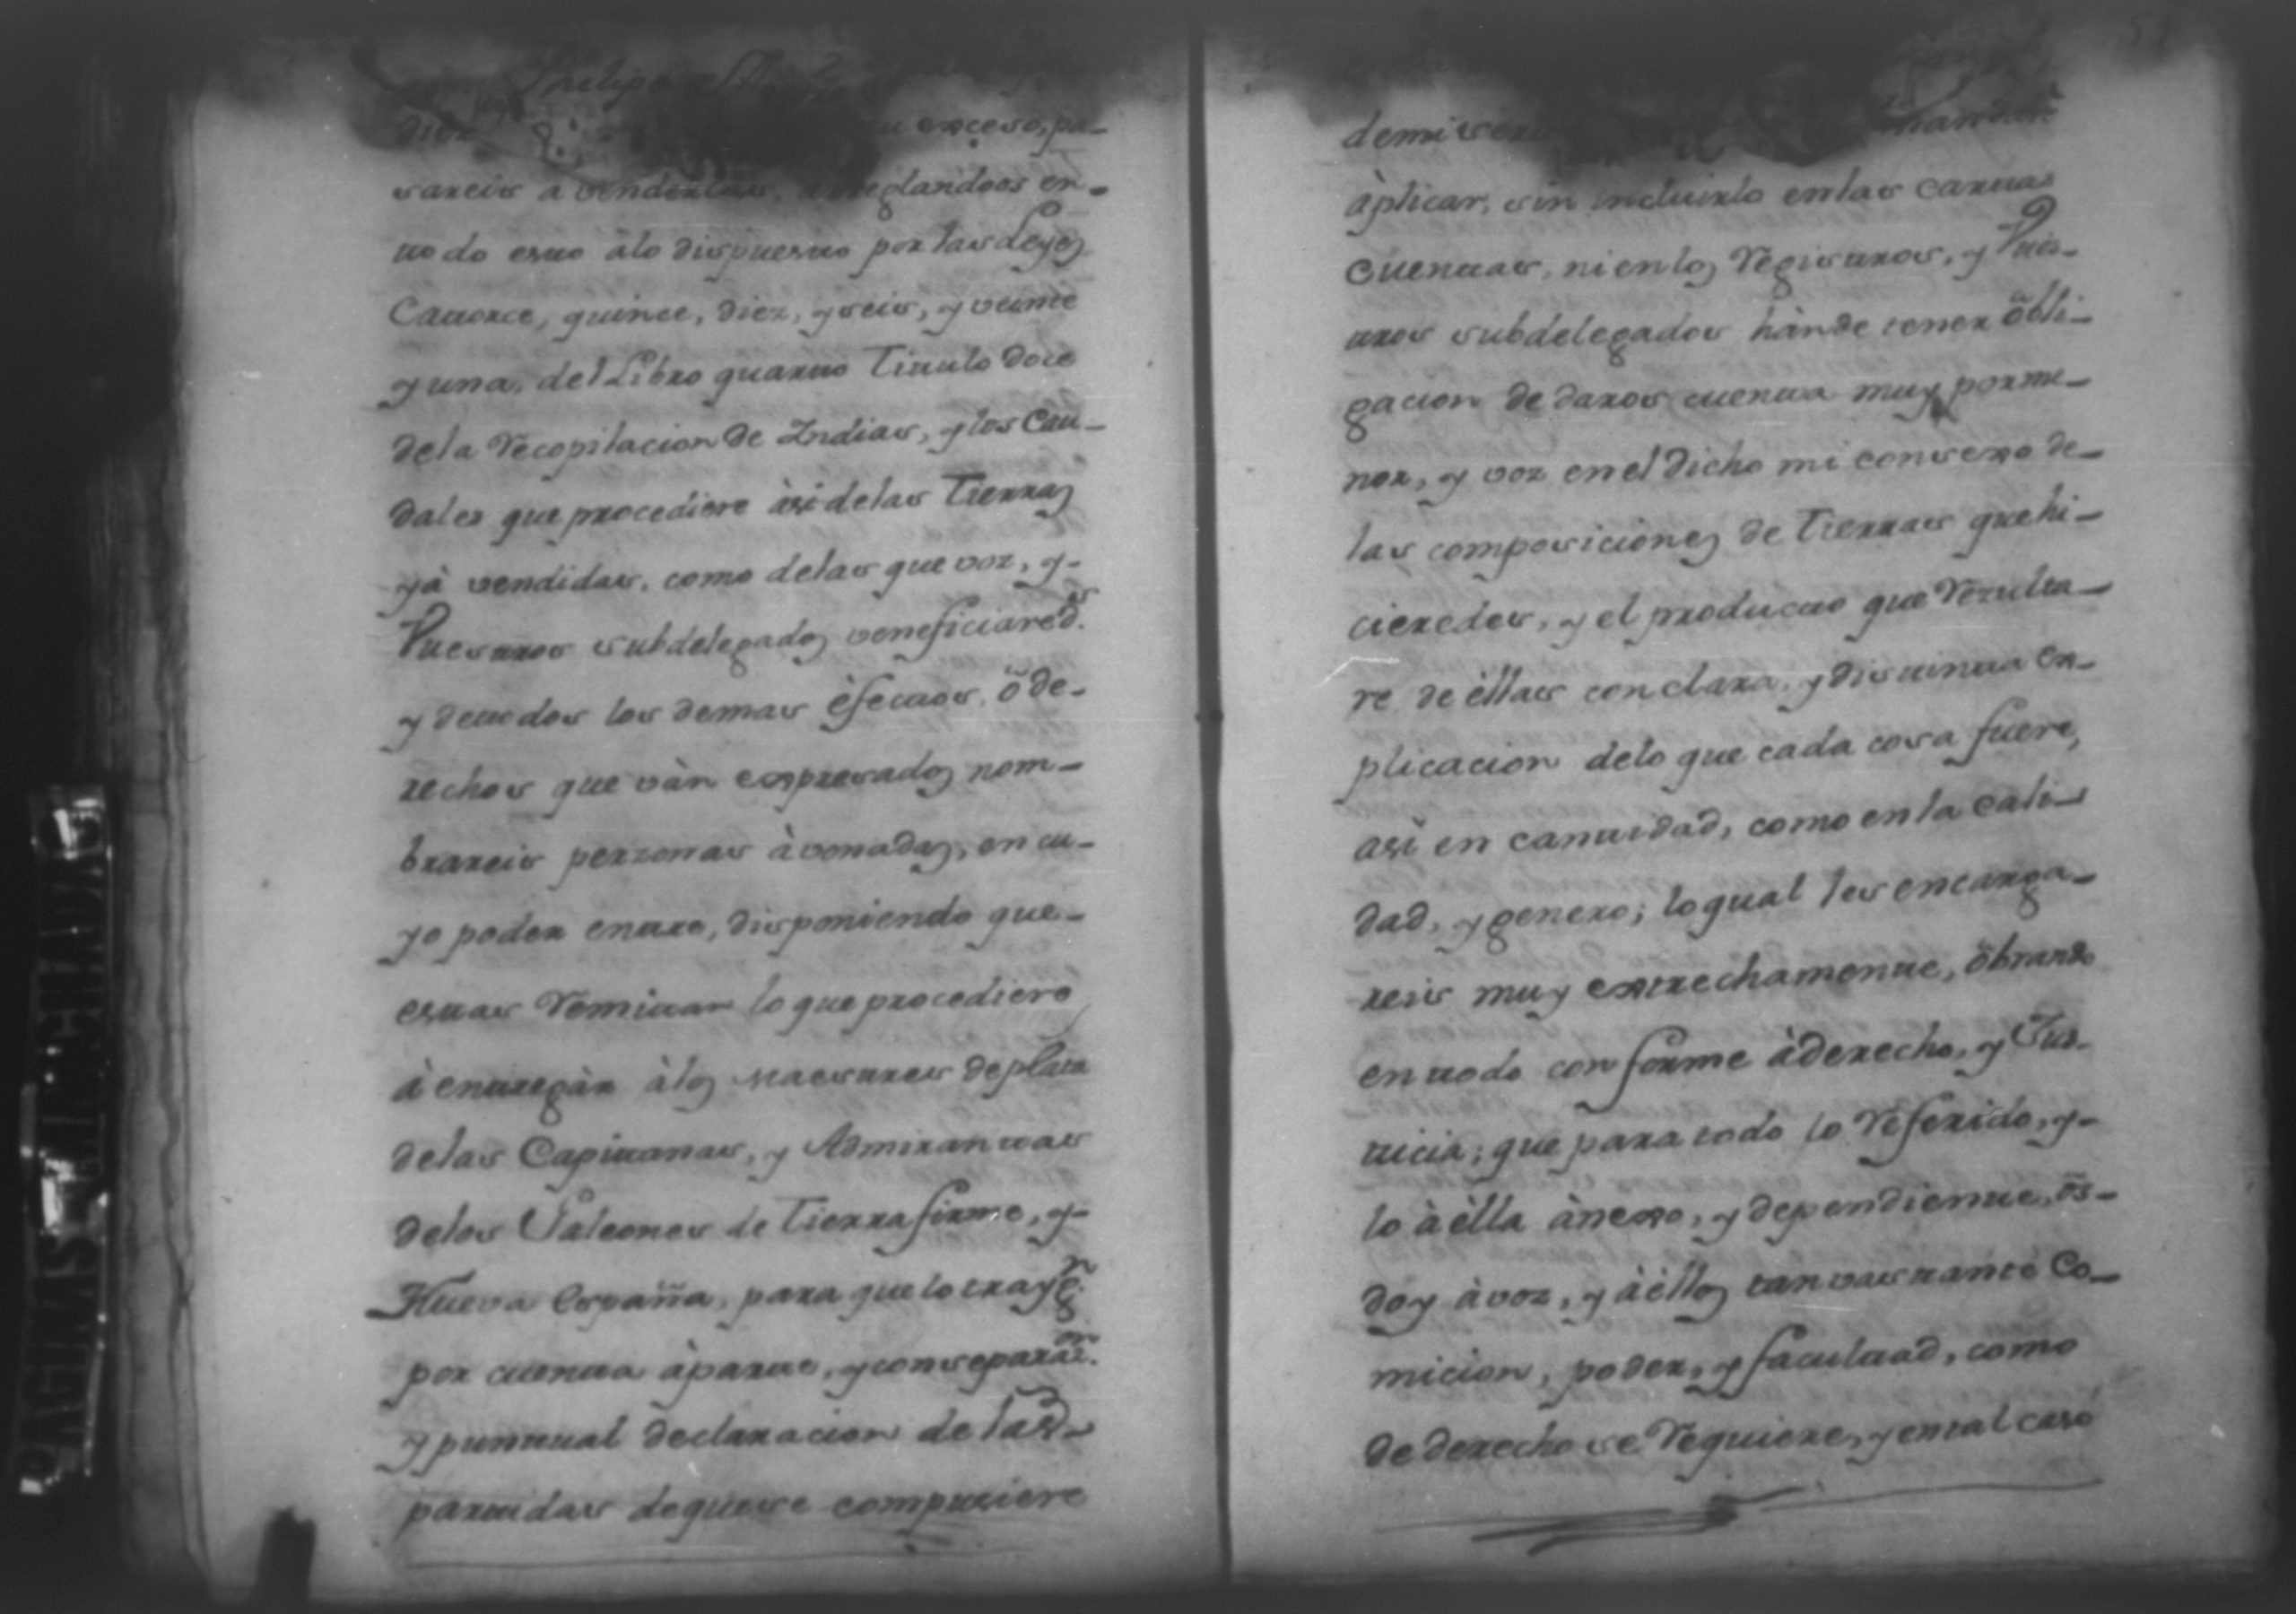 exceso, pa-
sareis a venderlas, arreglandoos en-
todo esto àlo dispuesto por las Leyes
Catorce, quince, diez, y seis, y veinte
y una, del Libro quarto Titulo doce
dela Recopilacion de Indias, y los Cau-
dales que procediere àsi delas Tierras
yà vendidas, como delas que voz, y-
Vuestros subdelegados veneficiaredes.
y de todos los demas èfectos, ò de-
rechos que vàn expresados nom-
brareis perzonas àvonadas, en cu-
yo poder entre, disponiendo que-
estas Remitan lo que procediere
à entregàr àlos Maestres de plata
delas Capitanas, y Admirantas
delos Galeones de Tierra firme, y-
Nueva España, para que lo traygn.
por cuenta àparte, y con separaon.
y puntual declaracion de las-
partidas de que se compusiere
demi
àplicar, sin incluirlo en las Cartas
Cuentas, ni en los Registros, y Vues-
tros subdelegados hàn de tener òbli-
gacion de daros cuenta muy porme-
nor, y voz en el dicho mi consexo de-
las composiciones de Tierras que hi-
cieredes, y el producto que Rezulta-
re de èllas con clara, y distinta ex-
plicacion delo que cada cosa fuere,
asi en cantidad, como en la Cali-
dad, y genero; lo qual les encarga-
reis muy extrechamente, òbrando
en todo conforme àderecho, y Jus-
ticia; que para todo lo Referido, y-
lo à èlla ànexo, y dependiente, òs-
doy àvoz, y àèllos tan vastante Co-
micion, poder, y facultad, como
de derecho se Requiere, y en tal caso
PAGINAS MANCHADAS